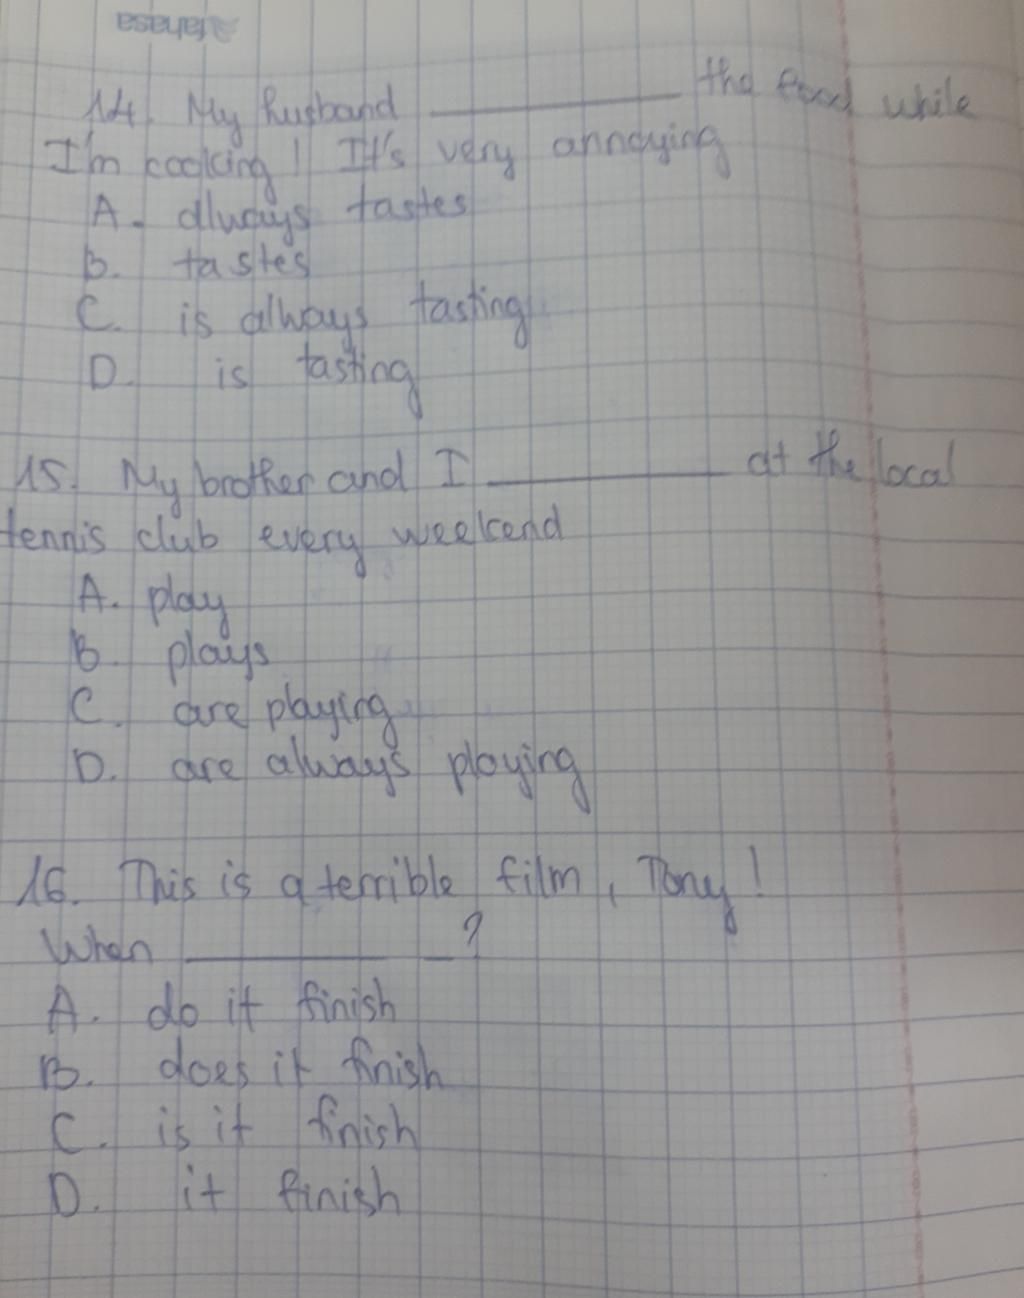 14. My husband ________ the food while
I'm cooking! It's very annoying
A. always tastes
B. tastes
C. is always tasting
D. is tasting
15. My brother and I ________ at the local
tennis club every weekend
A. play
B. plays
C. are playing
D. are always playing
16. This is a terrible film, Tony!
When ________ _?
A. do it finish
B. does it finish
C. is it finish
D. it finish